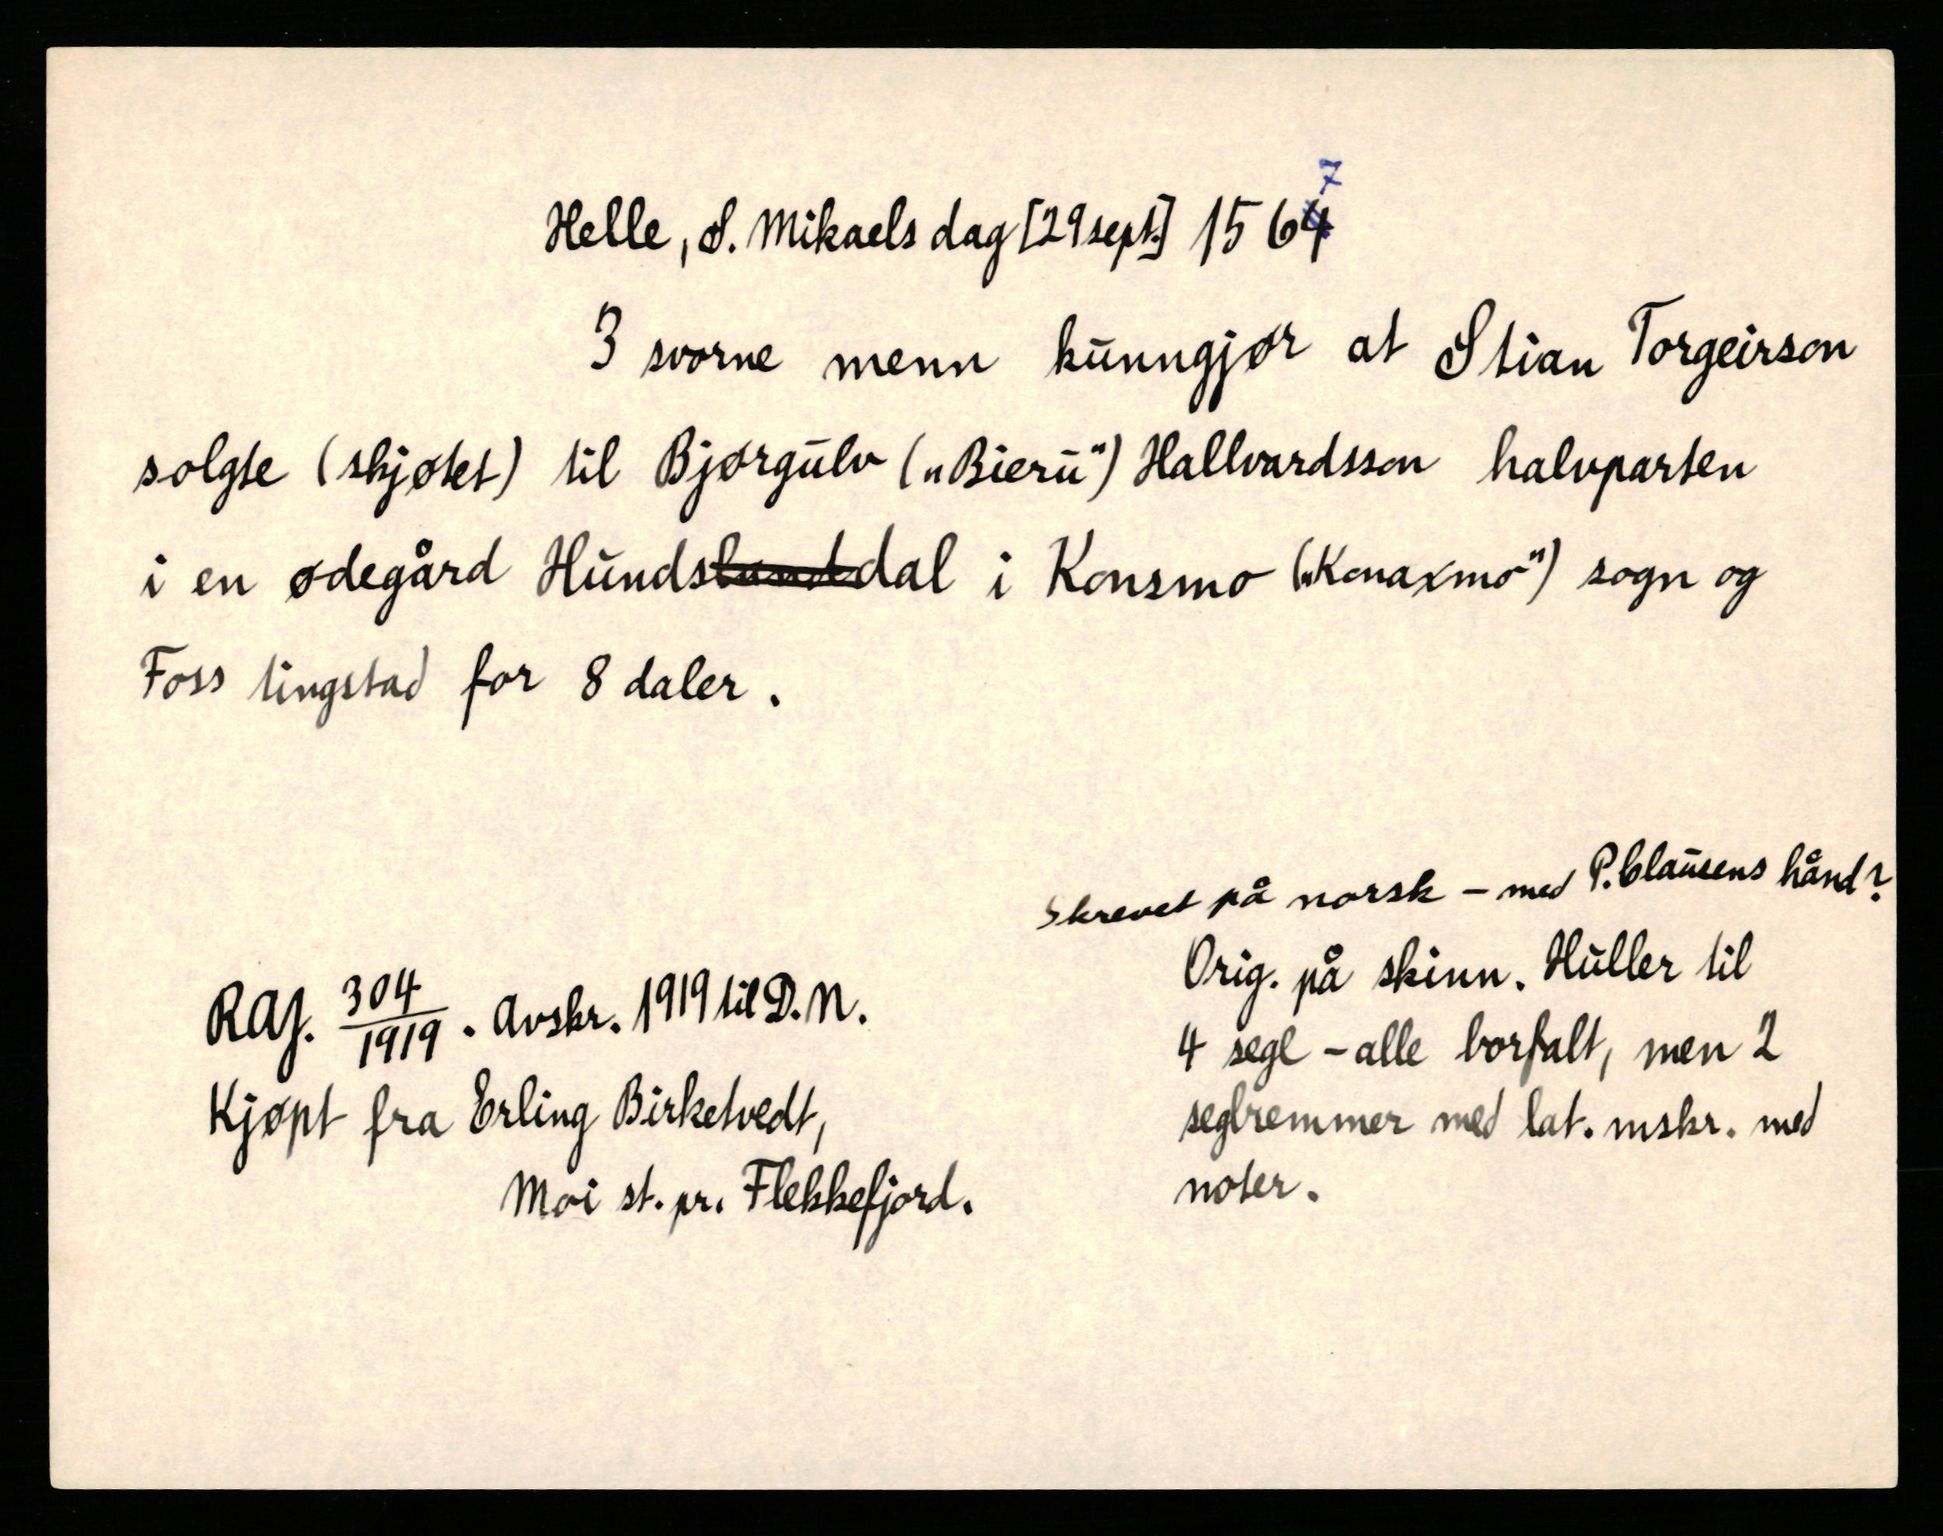 Helle, S. Mikaels dag [29 sept.] 1564 7
3 svorne menn kunngjør at Stian Torgeirson
solgte (skjøtet) til Bjørgulv („Bieru") Hallvardsson halvparten
i en ødegård Hundslunddal i Konsmo („Konaxmo") sogn og
Foss tingstad for 8 daler.
Skrevet på norsk – med P. Clausens hånd?
Orig. på skinn. Huller til
4 segl – alle borfalt, men 2
seglremmer med lat. mskr. med
noter.
RAJ. 304/1919. Avskr. 1919 til D.N.
Kjøpt fra Erling Birketvedt,
Moi st. pr. Flekkefjord.